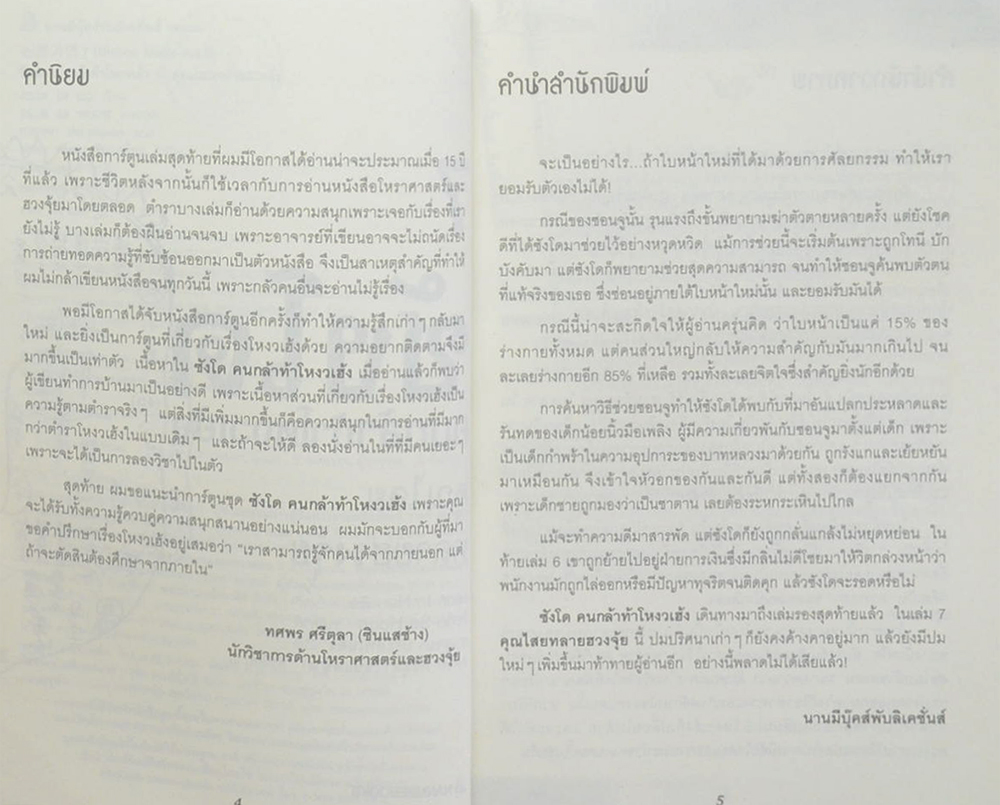 คำนิยม
หนังสือการ์ตูนเล่มสุดท้ายที่ผมมีโอกาสได้อ่านน่าจะประมาณเมื่อ 15 ปี
ที่แล้ว เพราะชีวิตหลังจากนั้นก็ใช้เวลากับการอ่านหนังสือโหราศาสตร์และ
ฮวงจุ้ยมาโดยตลอด ตำราบางเล่มก็อ่านด้วยความสนุกเพราะเจอกับเรื่องที่เรา
ยังไม่รู้ บางเล่มก็ต้องฝืนอ่านจนจบ เพราะอาจารย์ที่เขียนอาจจะไม่ถนัดเรื่อง
การถ่ายทอดความรู้ที่ซับซ้อนออกมาเป็นตัวหนังสือ จึงเป็นสาเหตุสำคัญที่ทำให้
ผมไม่กล้าเขียนหนังสือจนทุกวันนี้ เพราะกลัวคนอื่นจะอ่านไม่รู้เรื่อง
พอมีโอกาสได้จับหนังสือการ์ตูนอีกครั้งก็ทำให้ความรู้สึกเก่าๆ กลับมา
ใหม่ และยิ่งเป็นการ์ตูนที่เกี่ยวกับเรื่องโหงวเฮ้งด้วย ความอยากติดตามจึงมี
มากขึ้นเป็นเท่าตัว เนื้อหาใน ซังโด คนกล้าท้าโหงวเฮ้ง เมื่ออ่านแล้วก็พบว่า
ผู้เขียนทำการบ้านมาเป็นอย่างดี เพราะเนื้อหาส่วนที่เกี่ยวกับเรื่องโหงวเฮ้งเป็น
ความรู้ตามตำราจริงๆ แต่สิ่งที่มีเพิ่มมากขึ้นก็คือความสนุกในการอ่านที่มีมาก
กว่าตำราโหงวเฮ้งในแบบเดิมๆ และถ้าจะให้ดี ลองนั่งอ่านในที่ที่มีคนเยอะๆ
เพราะจะได้เป็นการลองวิชาไปในตัว
สุดท้าย ผมขอแนะนำการ์ตูนชุด ซังโด คนกล้าท้าโหงวเฮ้ง เพราะคุณ
จะได้รับทั้งความรู้ควบคู่ความสนุกสนานอย่างแน่นอน ผมมักจะบอกกับผู้ที่มา
ขอคำปรึกษาเรื่องโหงวเฮ้งอยู่เสมอว่า "เราสามารถรู้จักคนได้จากภายนอก แต่
ถ้าจะตัดสินต้องศึกษาจากภายใน"
ทศพร ศรีตุลา (ซินแสช้าง)
นักวิชาการด้านโหราศาสตร์และฮวงจุ้ย
4
คำนำสำนักพิมพ์
จะเป็นอย่างไร...ถ้าใบหน้าใหม่ที่ได้มาด้วยการศัลยกรรม ทำให้เรา
ยอมรับตัวเองไม่ได้!
กรณีของซอนจูนั้น รุนแรงถึงขั้นพยายามฆ่าตัวตายหลายครั้ง แต่ยังโชค
ดีที่ได้ซังโดมาช่วยไว้อย่างหวุดหวิด แม้การช่วยนี้จะเริ่มต้นเพราะถูกโทนี บัก
บังคับมา แต่ซังโดก็พยายามช่วยสุดความสามารถ จนทำให้ซอนจูค้นพบตัวตน
ที่แท้จริงของเธอ ซึ่งซ่อนอยู่ภายใต้ใบหน้าใหม่นั้น และยอมรับมันได้
กรณีนี้น่าจะสะกิดใจให้ผู้อ่านครุ่นคิด ว่าใบหน้าเป็นแค่ 15% ของ
ร่างกายทั้งหมด แต่คนส่วนใหญ่กลับให้ความสำคัญกับมันมากเกินไป จน
ละเลยร่างกายอีก 85% ที่เหลือ รวมทั้งละเลยจิตใจซึ่งสำคัญยิ่งนักอีกด้วย
การค้นหาวิธีช่วยซอนจูทำให้ซังโดได้พบกับที่มาอันแปลกประหลาดและ
รันทดของเด็กน้อยนิ้วมือเพลิง ผู้มีความเกี่ยวพันกับซอนจูมาตั้งแต่เด็ก เพราะ
เป็นเด็กกำพร้าในความอุปการะของบาทหลวงมาด้วยกัน ถูกรังแกและเย้ยหยัน
มาเหมือนกัน จึงเข้าใจหัวอกของกันและกันดี แต่ทั้งสองก็ต้องแยกจากกัน
เพราะเด็กชายถูกมองว่าเป็นซาตาน เลยต้องระหกระเหินไปไกล
แม้จะทำความดีมาสารพัด แต่ซังโดก็ยังถูกกลั่นแกล้งไม่หยุดหย่อน ใน
ท้ายเล่ม 6 เขาถูกย้ายไปอยู่ฝ่ายการเงินซึ่งมีกลิ่นไม่ดีโชยมาให้วิตกล่วงหน้าว่า
พนักงานมักถูกไล่ออกหรือมีปัญหาทุจริตจนติดคุก แล้วซังโดจะรอดหรือไม่
ซังโด คนกล้าท้าโหงวเฮ้ง เดินทางมาถึงเล่มรองสุดท้ายแล้ว ในเล่ม 7
คุณไสยทลายฮวงจุ้ย นี้ ปมปริศนาเก่าๆ ก็ยังคงค้างคาอยู่มาก แล้วยังมีปม
ใหม่ๆ เพิ่มขึ้นมาท้าทายผู้อ่านอีก อย่างนี้พลาดไม่ได้เสียแล้ว!
นานมีบุ๊คส์พับลิเคชั่นส์
5